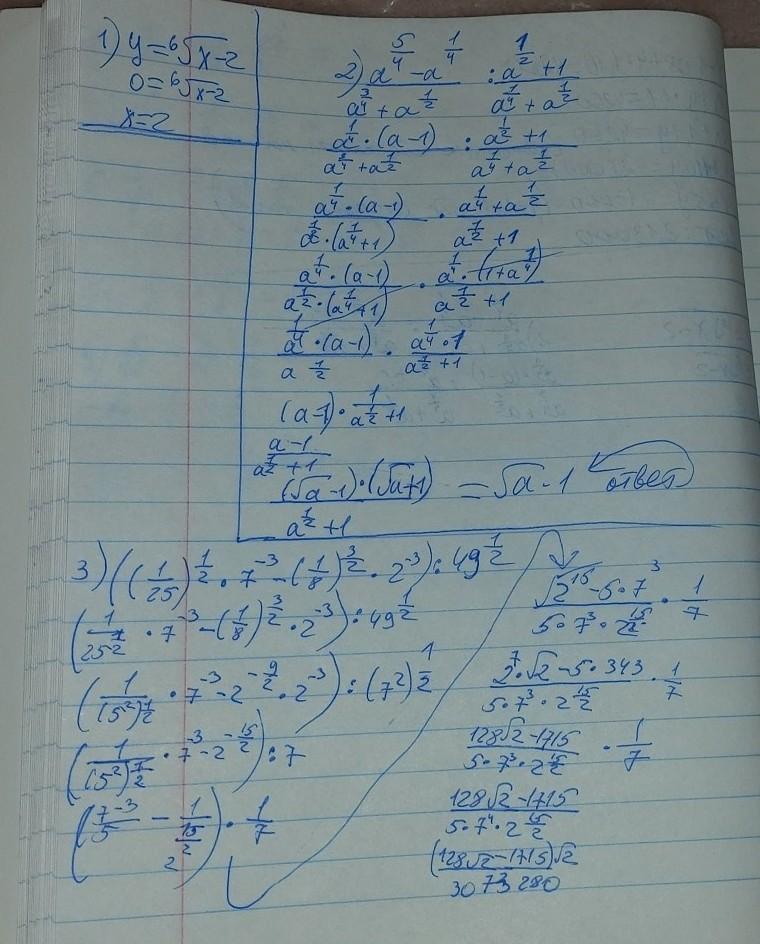 1) y = ⁶√x-2
0 = ⁶√x-2
x = 2
2) (a^(5/4) - a^(1/4))/(a^(3/4) + a^(1/2)) : (a^(1/2) + 1)/(a^(1/4) + a^(1/2))
(a^(1/4) · (a-1))/(a^(3/4) + a^(1/2)) : (a^(1/2) + 1)/(a^(1/4) + a^(1/2))
(a^(1/4) · (a-1))/(a^(1/2) · (a^(1/4) + 1)) · (a^(1/4) + a^(1/2))/(a^(1/2) + 1)
(a^(1/4) · (a-1))/(a^(1/2) · (a^(1/4) + 1)) · (a^(1/4) · (1 + a^(1/4)))/(a^(1/2) + 1)
(a^(1/4) · (a-1))/(a^(1/2)) · (a^(1/4) · 1)/(a^(1/2) + 1)
(a-1) · 1/(a^(1/2) + 1)
(a-1)/(a^(1/2) + 1)
((√a-1) · (√a+1))/(a^(1/2) + 1) = √a - 1 ответ
3) ((1/25)^(1/2) · 7^(-3) - (1/8)^(3/2) · 2^(-3)) : 49^(1/2)
(1/25^(1/2) · 7^(-3) - (1/8)^(3/2) · 2^(-3)) : 49^(1/2)
(1/(5²)^(1/2) · 7^(-3) - 2^(-9/2) · 2^(-3)) : (7²)^(1/2)
(1/(5²)^(1/2) · 7^(-3) - 2^(-15/2)) : 7
(7^(-3)/5 - 1/2^(15/2)) · 1/7
(√2^15 - 5 · 7^3)/(5 · 7^3 · 2^(15/2)) · 1/7
(2^7 · √2 - 5 · 343)/(5 · 7^3 · 2^(15/2)) · 1/7
(128√2 - 1715)/(5 · 7^3 · 2^(15/2)) · 1/7
(128√2 - 1715)/(5 · 7^4 · 2^(15/2))
((128√2 - 1715)√2)/3073280